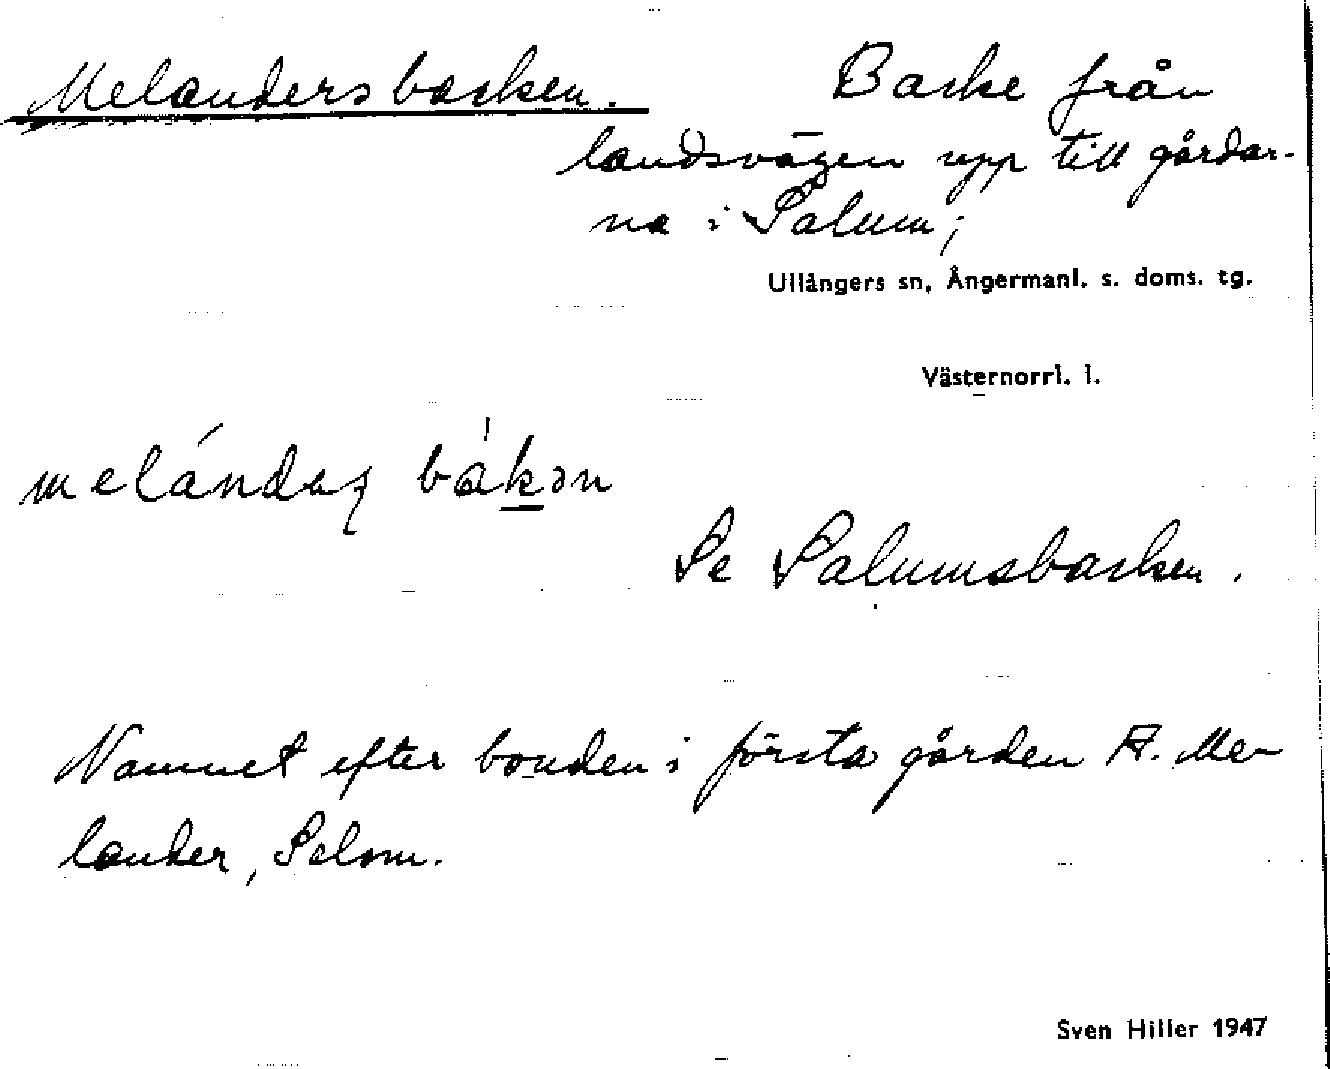 Melandersbacken. Backe från
landsvägen upp till gårdar-
na i Salum;
Ullångers sn, Ångermanl. s. doms. tg.
Västernorrl. l.
melándaʂ bàkən
Se Salumsbacken.
Namnet efter bonden i första gården A. Me-
lander, Salom.
Sven Hiller 1947